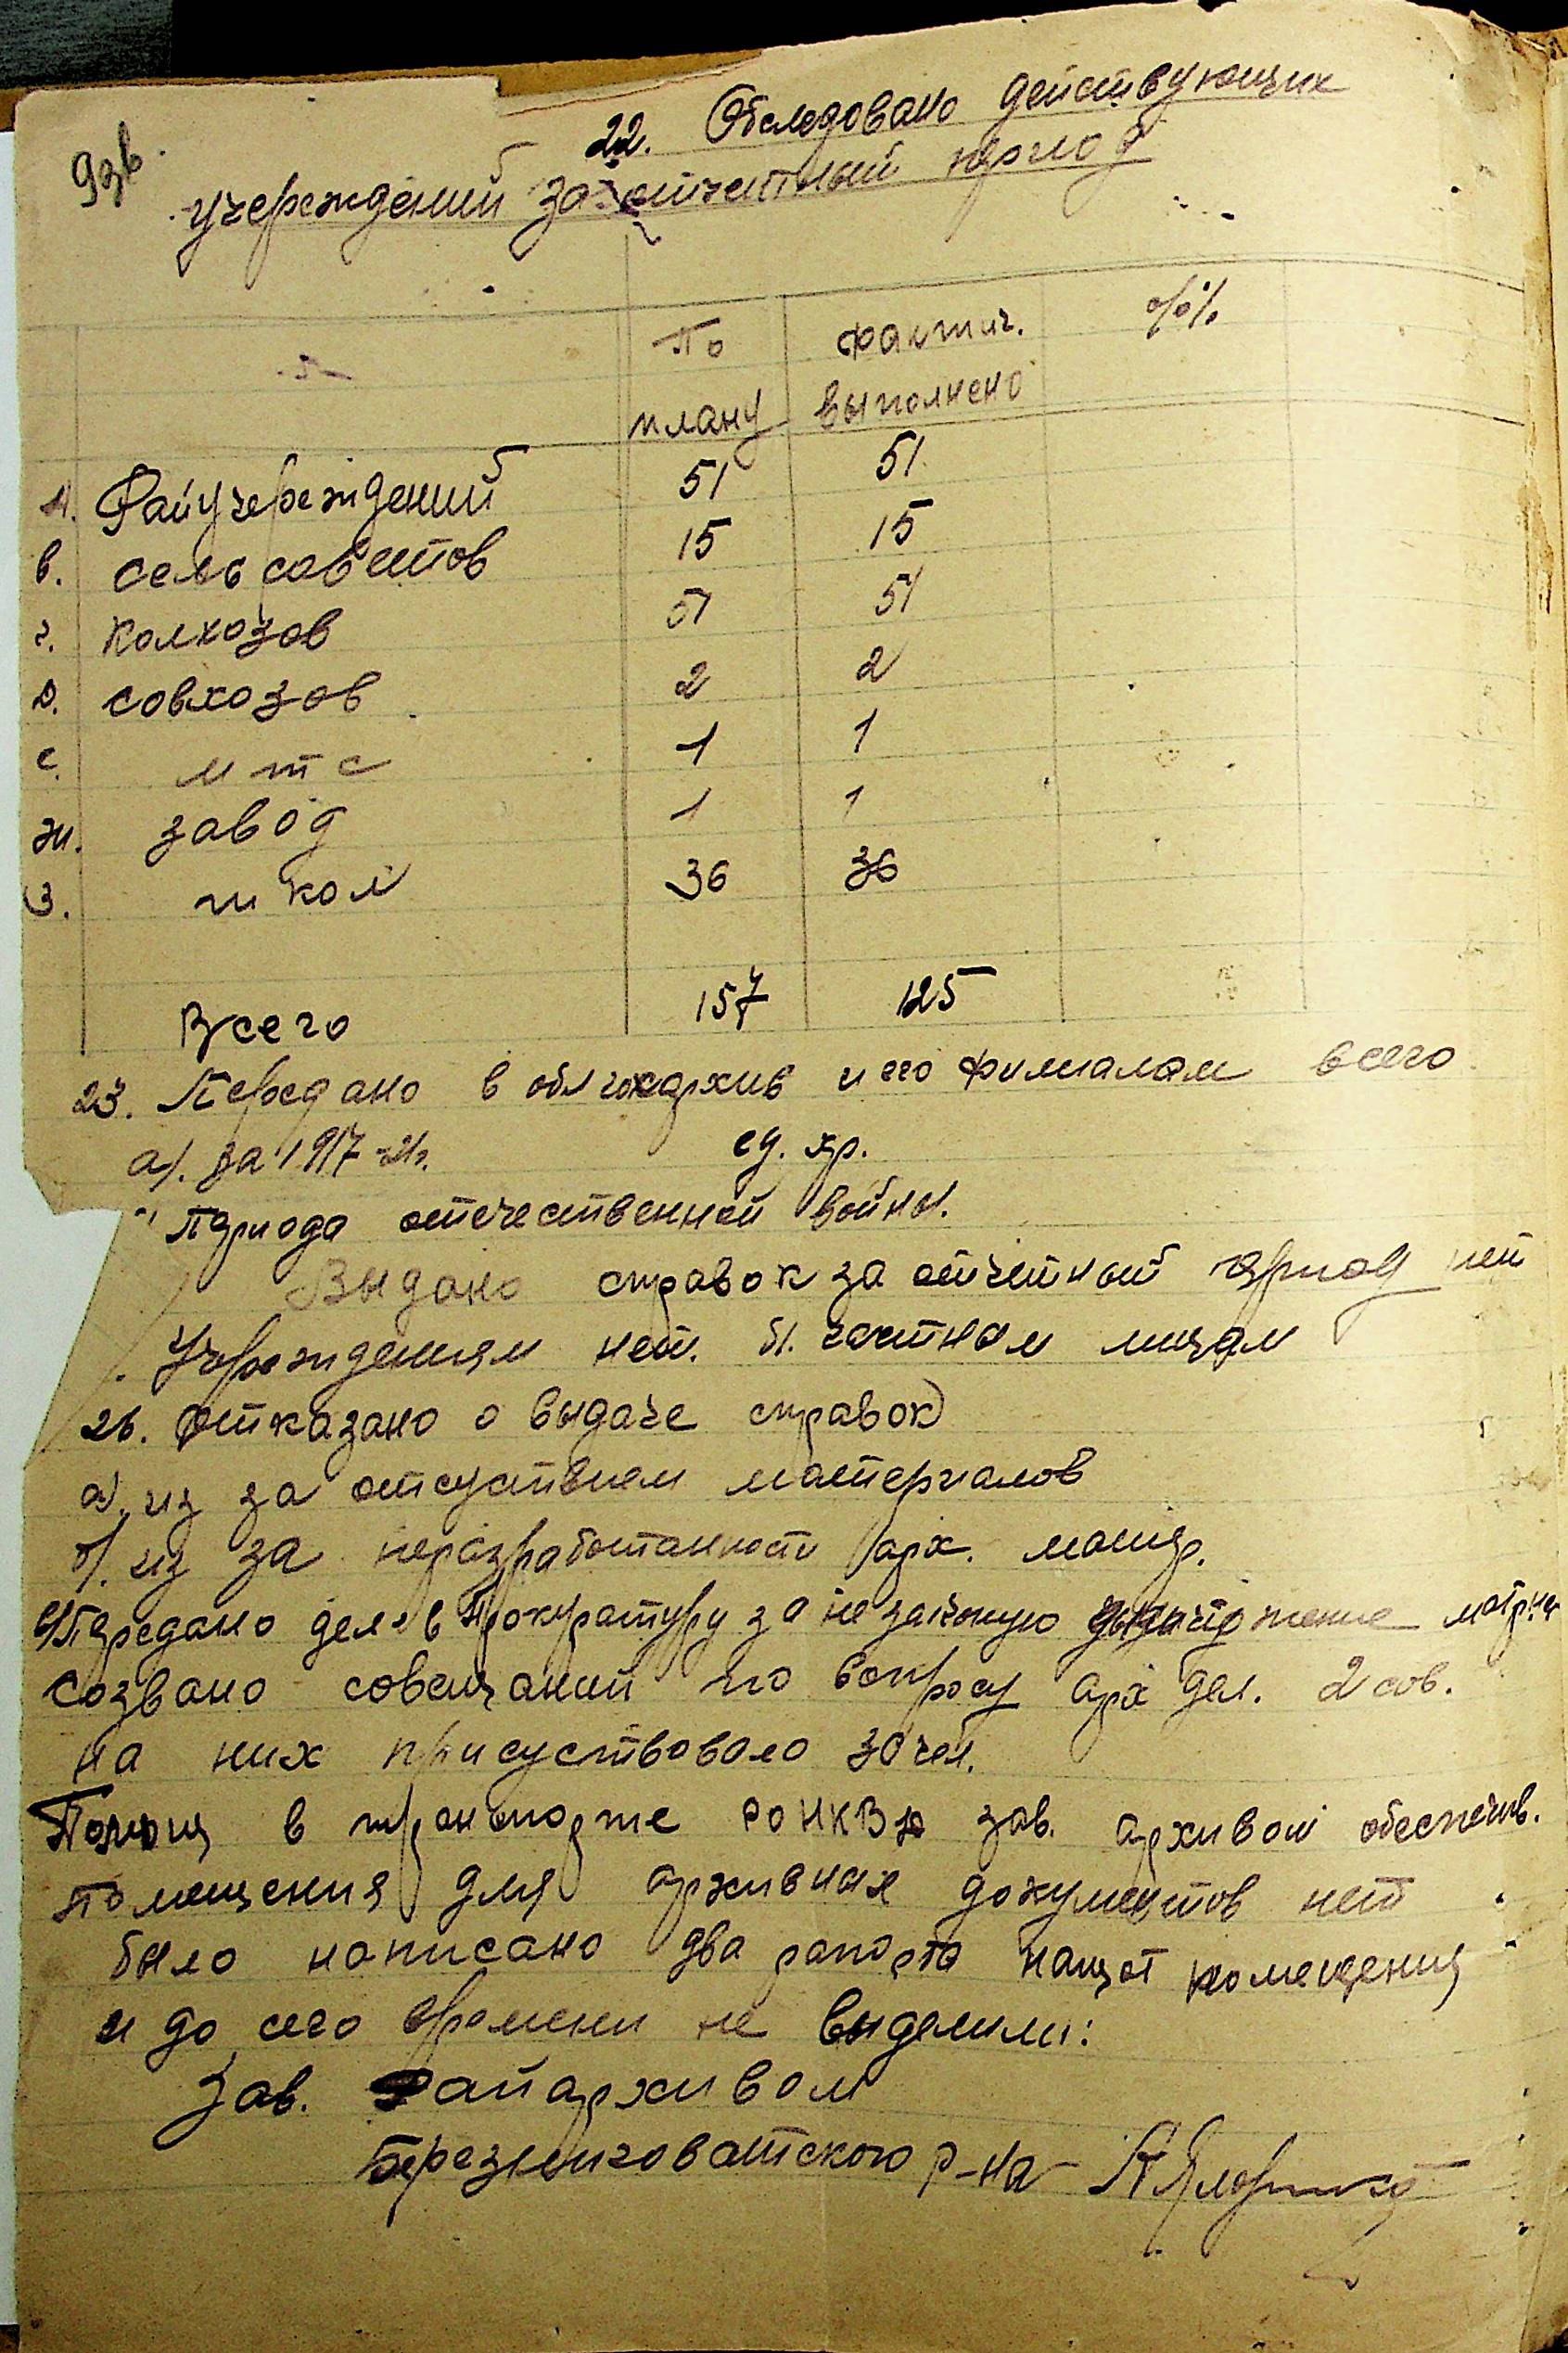 93в.
22. Обследовано действующих
учереждений за отчетный период
По фактич. %%
плану выполнено
Райучереждений 51 51
в. сельсоветов 15 15
г. колхозов 51 51
д. совхозов 2 2
е. мтс 1 1
ж. завод 1 1
з. школ 36 36
Всего 157 125
23. Передано в облгосархив и его филиалам всего
а). за 1917 ед. хр.
Периода отечественной войны.
Выдано справок за отчетный период нет
Учреждениям нет. б). частным лицам
26. Отказано о выдаче справок
а). из за отсуствием материалов
б). из за неразработанности арх. матер.
Передано дел в Прокуратуру за незаконую
созвано совещаний по вопросу арх дел. 2 сов.
на них присуствовало 30 чел.
Помощ в транспорте РОНКВД зав. архивом обеспечив.
помещения для архивных документов нет
было написано два рапорта нащот помещения
и до сего времени не выделили:
Зав. Райархивом
Березниговатского р-на